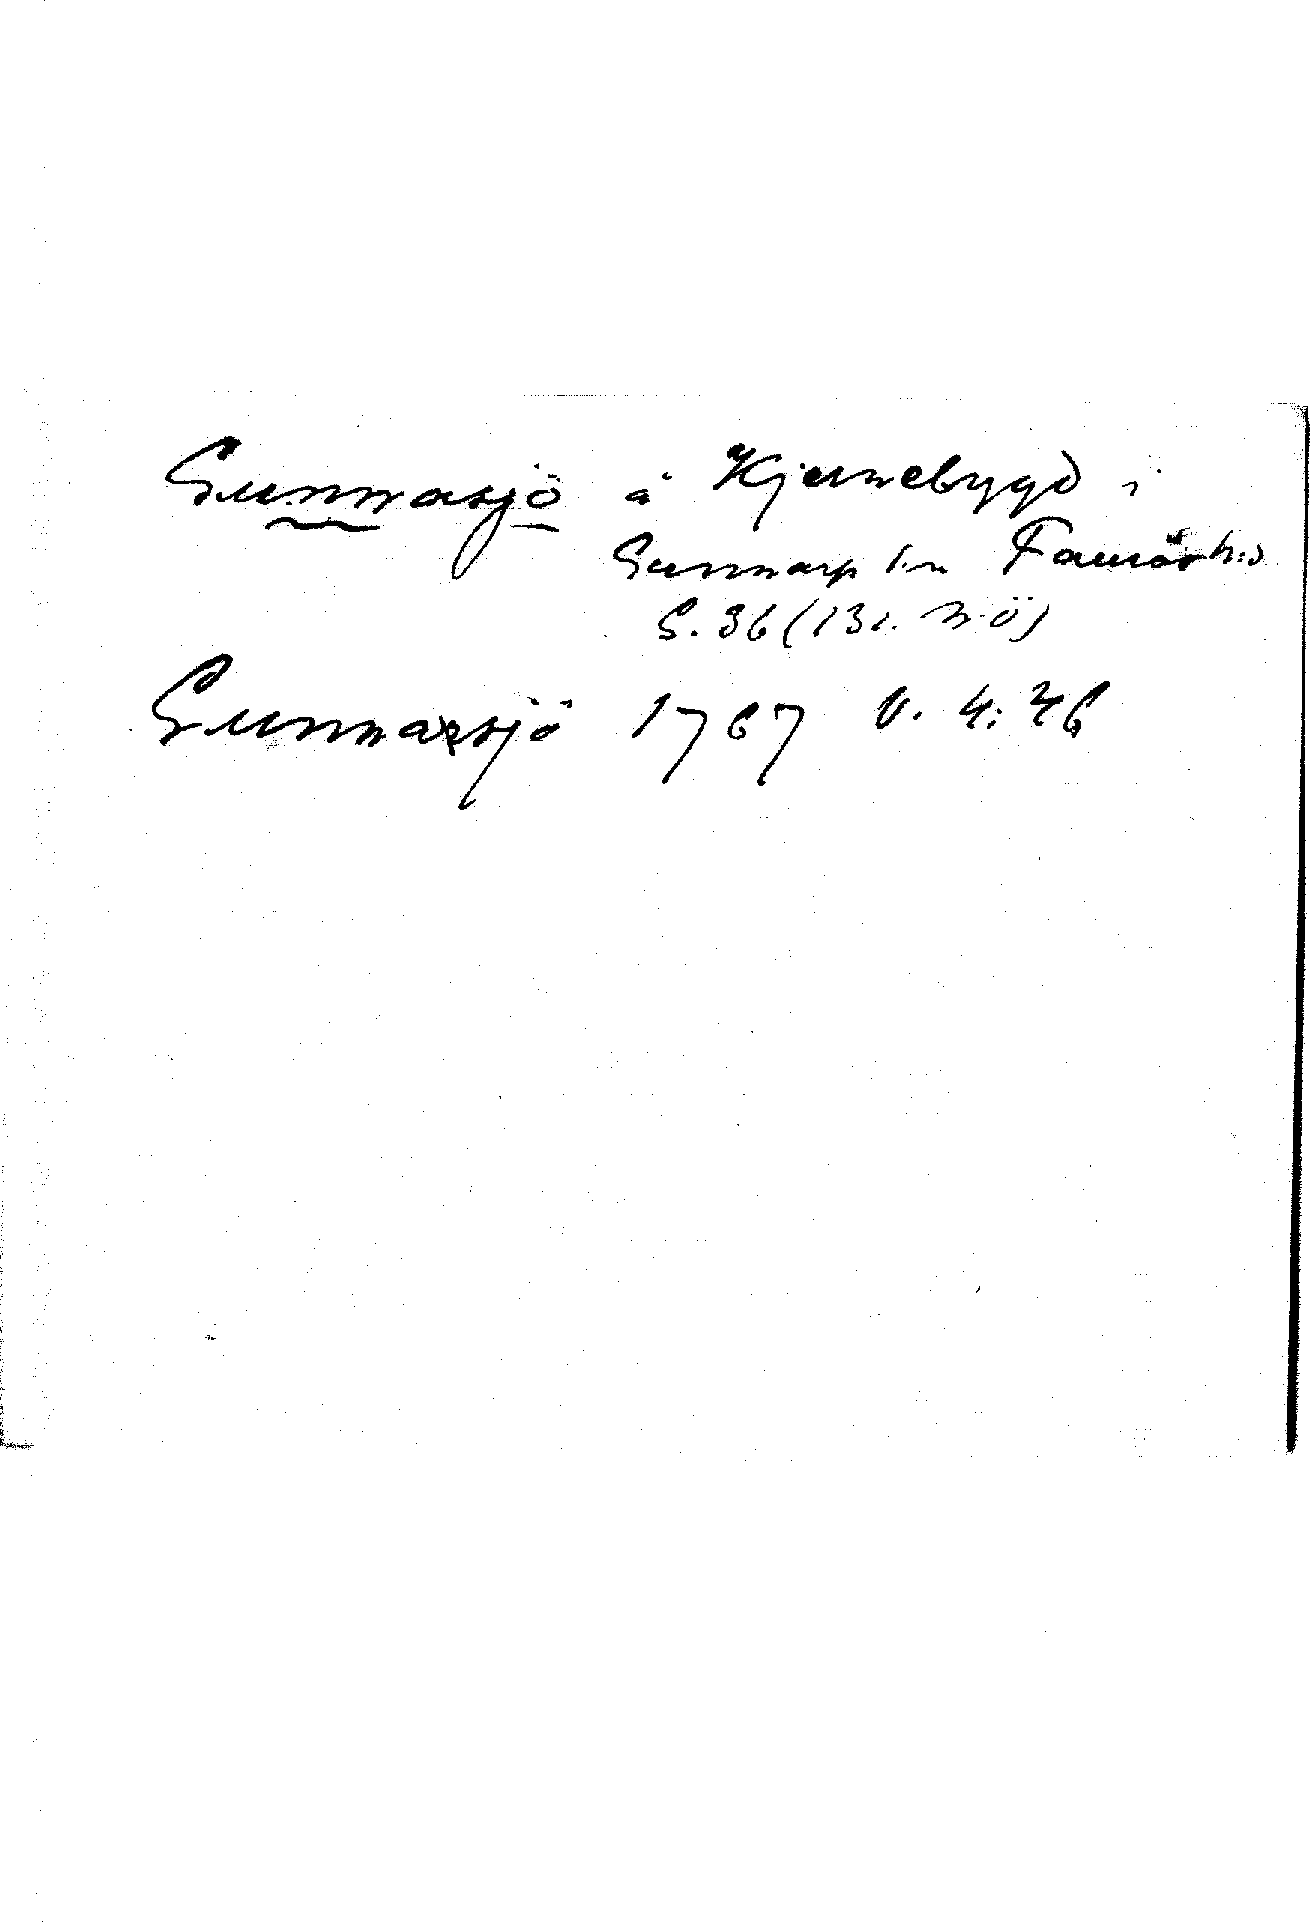 Gunnasjö å Kjernebygd i
Gunnarp sn Faurås h:d
S. 36 (131. n. ö)
Gunnarsjö 1767 v. 4: 46